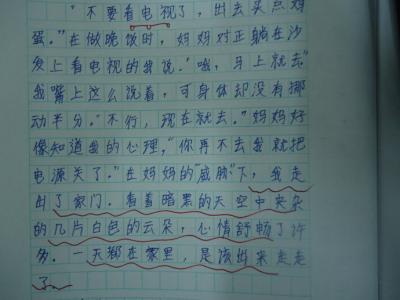 "不要看电视了,出去买点鸡
蛋。"在做晚饭时,妈妈对正躺在沙
发上看电视的我说."哦,马上就去."
我嘴上这么说着,可身体却没有挪
动半分."不行,现在就去."妈妈好
像知道我的心理,"你再不去我就把
电源关了."在妈妈的"威胁"下,我走
出了家门.看着暗黑的天空中夹杂
的几片白色的云朵,心情舒畅了许
多.一天都在家里,是该出来走走
了.